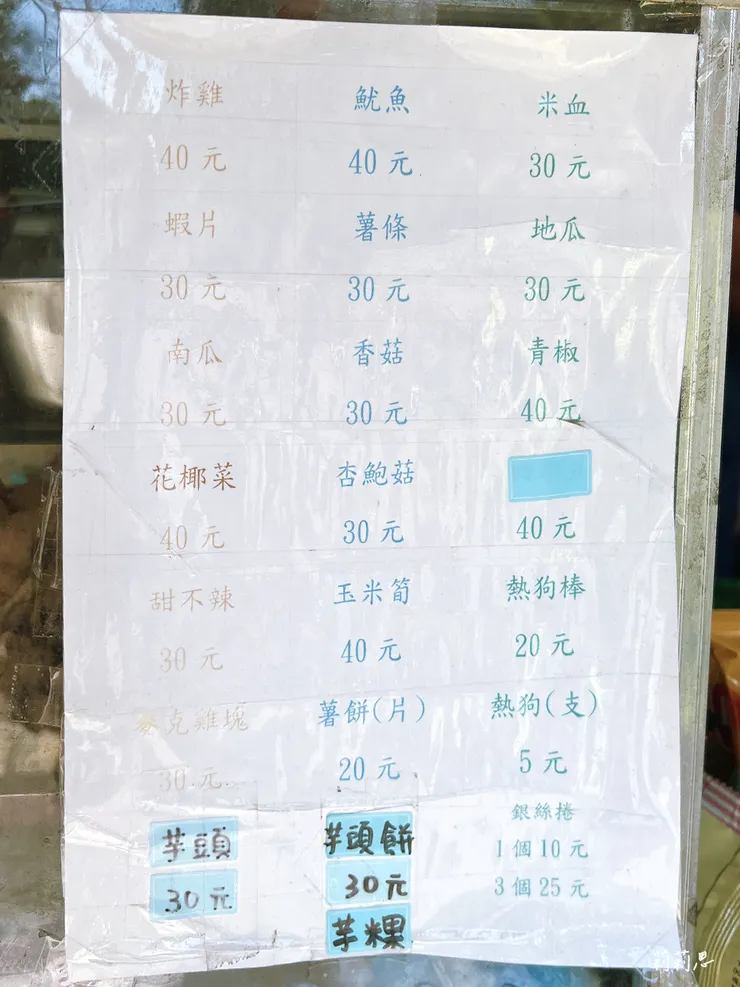 炸雞 魷魚 米血
40 元 40 元 30 元
蝦片 薯條 地瓜
30 元 30 元 30 元
南瓜 香菇 青椒
30 元 30 元 40 元
花椰菜 杏鮑菇
40 元 30 元 40 元
甜不辣 玉米筍 熱狗棒
30 元 40 元 20 元
麥克雞塊 薯餅(片) 熱狗(支)
30 元 20 元 5 元
芋頭 芋頭餅 銀絲捲
30元 30元 1 個 10 元
芋粿 3 個 25 元
莉莉思